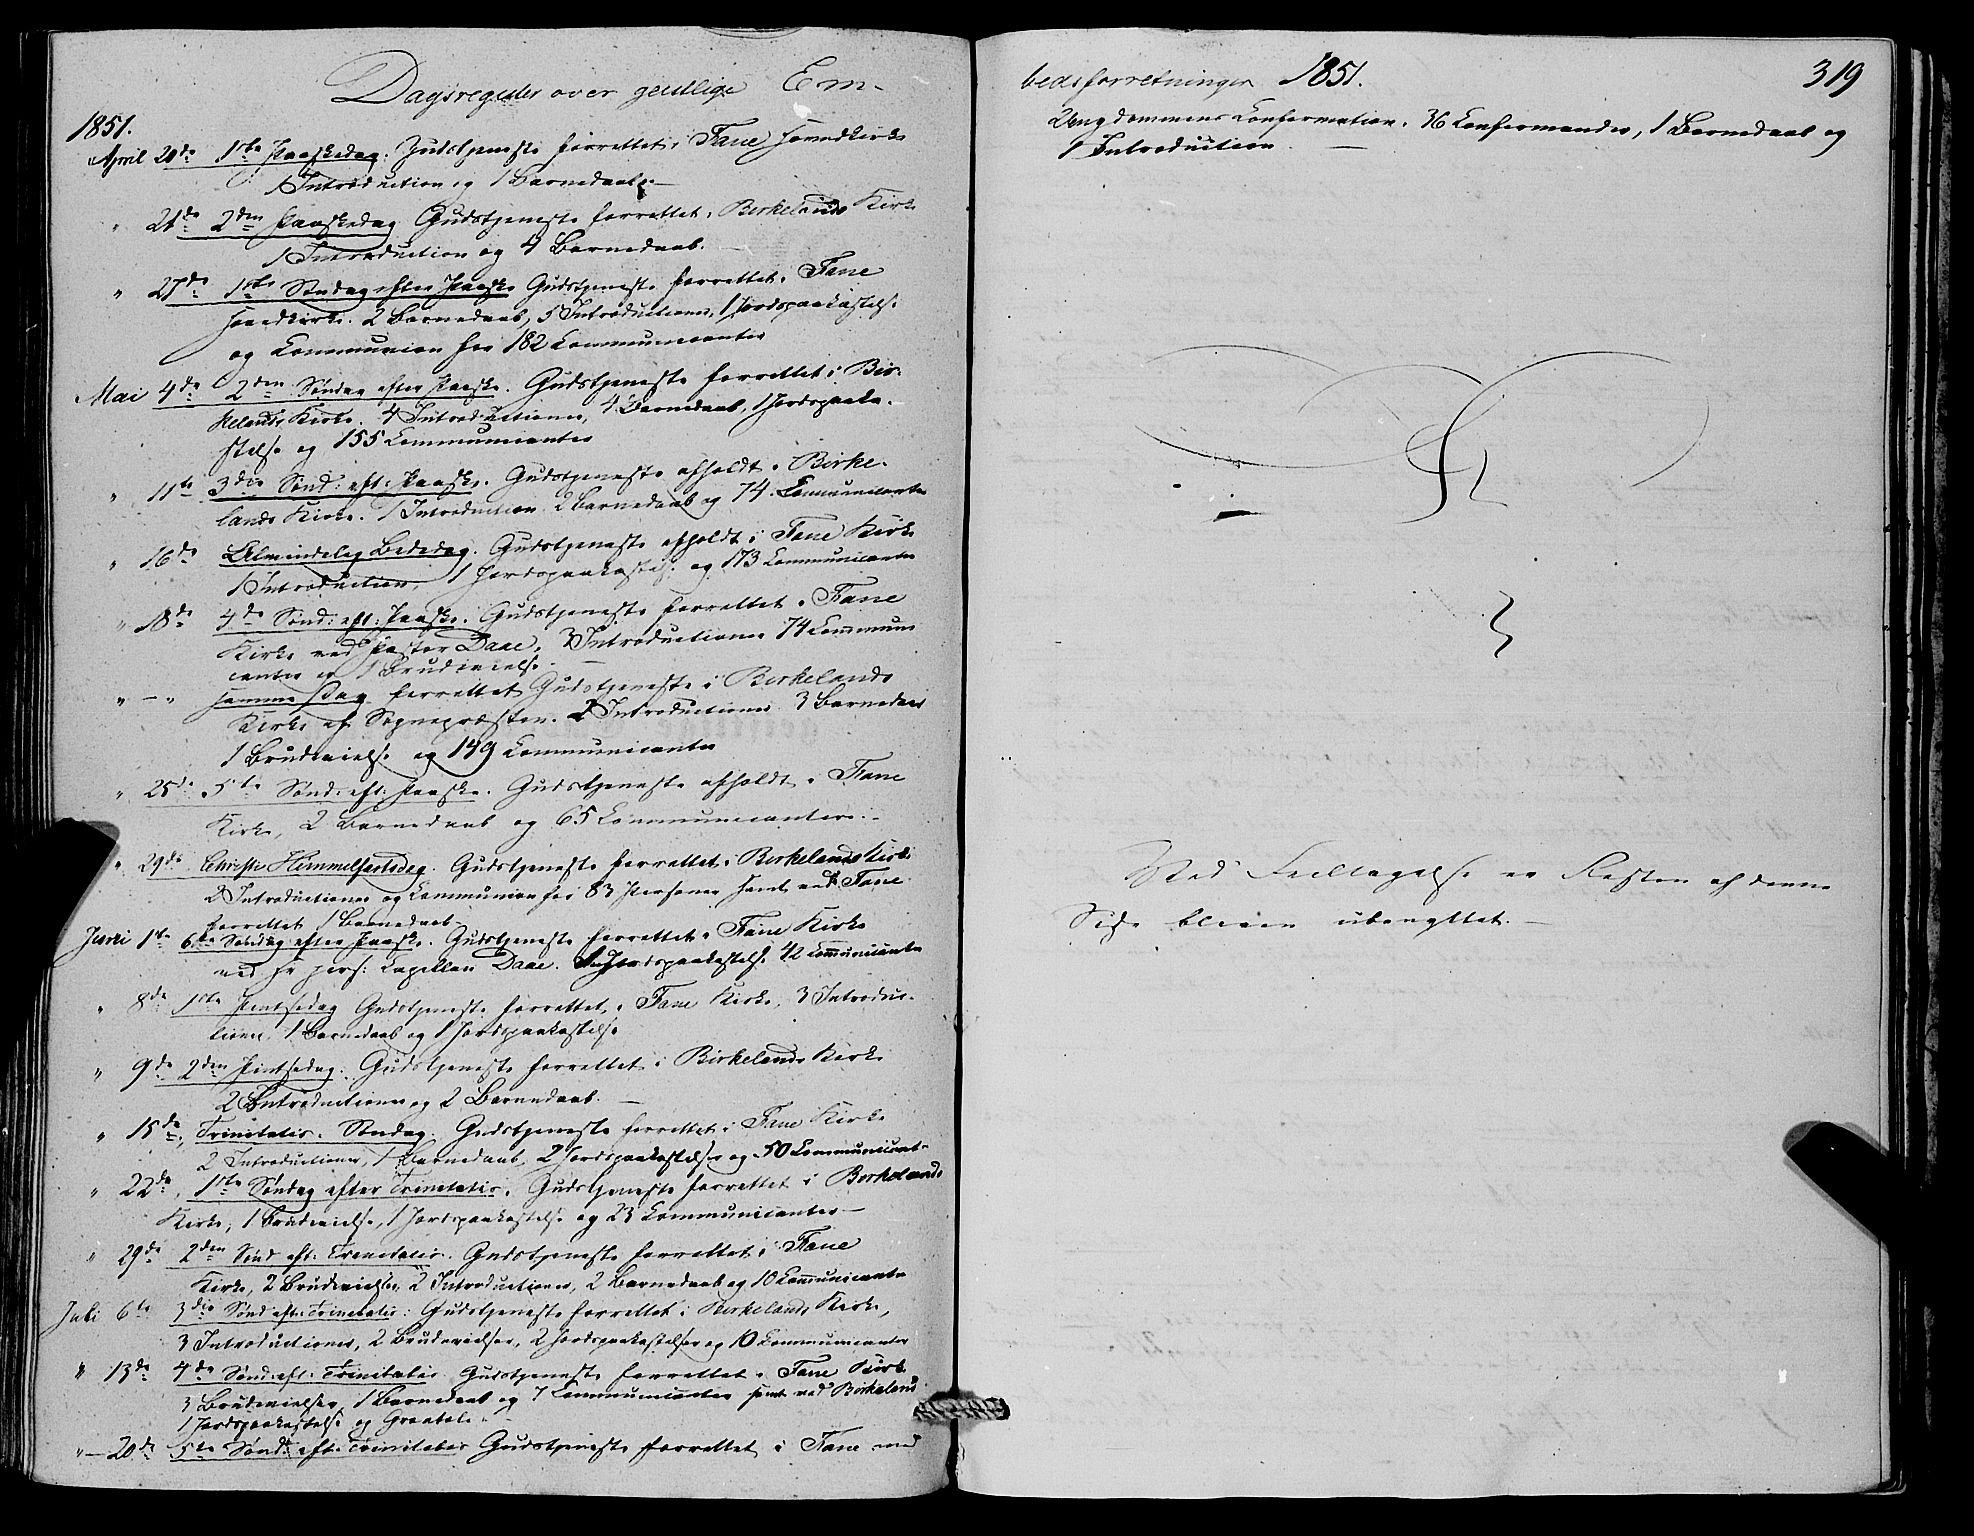 Dagsregister over geistlige Em-
1851.
April 20de 1ste Paaskedag. Gudstjeneste forrettet i Fane Hovedkirke
1 Introduction og 1 Barnedaab.
" 21de 2den Paaskedag Gudstjeneste forrettet i Birkelands Kirke
1 Introduction og 4 Barnedaab.
" 27de 1ste Søndag efter Paaske Gudstjeneste forrettet i Fane
Hovedkirke. 2 Barnedaab, 5 Introductioner, 1 Jordspaakastelse
og Communion for 182 Communicanter
Mai 4de 2den Søndag efter Paaske. Gudstjeneste forrettet i Bir-
kelands Kirke. 4 Introductioner, 4 Barnedaab, 1 Jordspaaka-
stelse og 155 Communicanter
" 11te 3die Sønd: eft: Paaske. Gudstjeneste afholdt i Birke-
lands Kirke. 1 Introduction 2 Barnedaab og 74 Communicanter
" 16de Almindelig Bededag. Gudstjeneste afholdt i Fane Kirke
1 Introduction, 1 Jordspaakastelse og 173 Communicanter
" 18de 4de Sønd: eft: Paaske. Gudstjeneste forrettet i Fane
Kirke ved Pastor Daae. 3 Introductioner 74 Communi
canter og 1 Brudevielse
" – " samme Dag forrettet Gudstjeneste i Birkelands
Kirke af Sognepræsten. 2 Introductioner 3 Barnedaab
1 Brudevielse og 149 Communicanter
" 25de 5te Sønd: eft: Paaske. Gudstjeneste afholdt i Fane
Kirke, 2 Barnedaab og 65 Communicanter.
" 29de Christi Himmelfartsdag. Gudstjeneste forrettet i Birkelands Kirke
2 Introductioner og Communion for 83 Personer samt ved Fane
forrettet 1 Barnedaab
Juni 1ste 6te Søndag efter Paaske. Gudstjeneste forrettet i Fane Kirke
ved Hr pers: Capellan Daae. Jordspaakastelse 42 Communicanter
" 8de 1ste Pintsedag Gudstjeneste forrettet i Fane Kirke, 3 Introduc-
tioner, 1 Barnedaab og 1 Jordspaakastelse
" 9de 2den Pintsedag. Gudstjeneste forrettet i Birkelands Kirke
2 Introductioner og 2 Barnedaab.
" 15de, Trinitatis Søndag. Gudstjeneste forrettet i Fane Kirke
2 Introductioner, 1 Barnedaab, 2 Jordspaakastelser og 50 Communicant-
" 22de, 1ste Søndag efter Trinitatis. Gudstjeneste forrettet i Birkelands
Kirke, 1 Brudevielse, 1 Jordspaakastelse og 23 Communicanter
" 29de 2den Sønd eft: Trinitatis. Gudstjeneste forrettet i Fane
Kirke, 2 Brudevielser, 2 Introductioner, 2 Barnedaab og 10 Communicanter
Juli 6te 3die Sønd eft: Trinitatis: Gudstjeneste forrettet i Birkelands Kirke,
3 Introductioner, 2 Brudevielser, 2 Jordspaakastelser og 10 Communicanter
" 13de 4de Sønd: eft: Trinitatis Gudstjeneste forrettet i Fane Kirke
3 Brudevielser, 1 Barnedaab og 7 Communicanter samt ved Birkeland
1 Jordspaakastelse og Gravtale.
" – 20de 5te Sønd: eft: Trinitatis Gudstjeneste forrettet i Fane med
bedsforretninger 1851. 319
Ungdommens Confirmation. 36 Confirmander, 1 Barnedaab og
1 Introduction.
Ved Feiltagelse er Resten af denne
Side bleven ubenyttet.